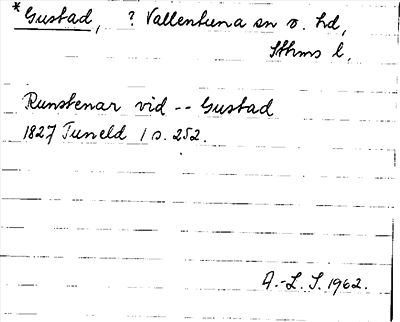 *Gustad, ? Vallentuna sn o. hd,
Sthms l,
Runstenar vid -- Gustad
1827 Tuneld 1 s. 252.
A.-L. S. 1962.